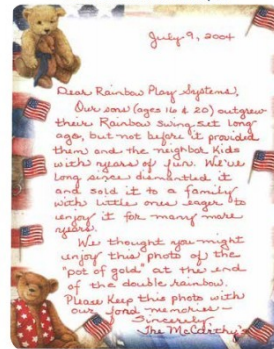 July 9, 2004
Dear Rainbow Play Systems,
Our sons (ages 16 & 20) outgrew
their Rainbow swing set long
ago, but not before it provided
them and the neighbor kids
with years of fun. We've
long since dismantled it
and sold it to a family
with little ones eager to
enjoy it for many more
years.
We thought you might
enjoy this photo of the
"pot of gold" at the end
of the double rainbow.
Please keep this photo with
our fond memories—
Sincerely,
The McCarthy's